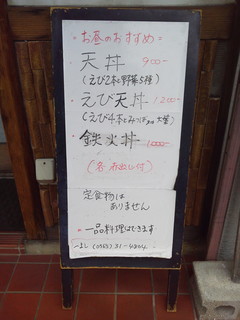 お昼のおすすめ
天丼 900-
(えび2本と野菜5種)
えび天丼 1200-
(えび4本とみつばの大葉)
鉄火丼 1000-
(各 赤だし付)
定食物は
ありません
一品料理はできます